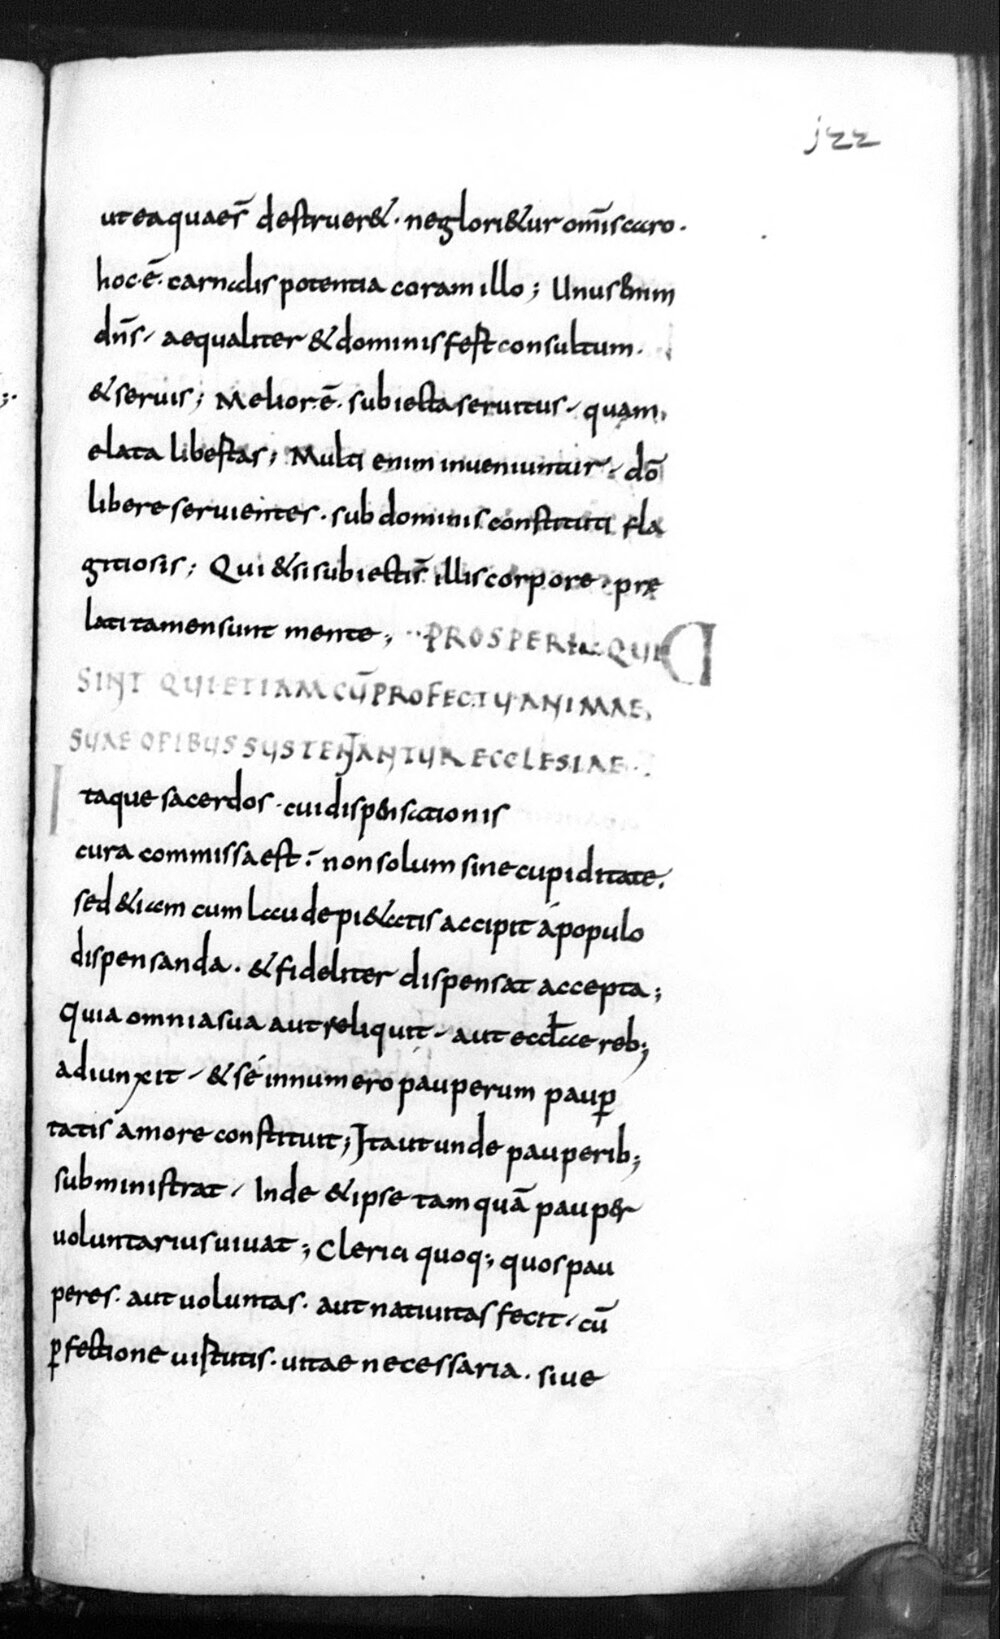 j22
ut ea quae sr̄ destruer&. ne glori&ur om̄is caro.
hoc·ē· carnalis potentia coram illo; Unus enim
dn̄s, aequaliter & dominis fert consultum.
& seruis; Melior·ē· subiecta seruitus, quam,
elata libertas; Multi enim inueniuntur, dō
libere seruientes. sub dominis constituti fla
gitiosis; Qui & si subiecti s̄ illis corpore. præ
lati tamen sunt mente; PROSPERI QUI
SINT QUI ETIAM CŪ PROFECTU ANIMAE,
SUAE OPIBUS SUSTENTANTUR ECCLESIAE
Itaque sacerdos. cui dispensationis
cura commissa est. non solum sine cupiditate.
sed &iam cum laude pi&atis accipit á populo
dispensanda. & fideliter dispensat accepta;
Quia omnia sua aut reliquit, aut eccłae reb;
adiunxit, & sé in numero pauperum paup̱
tatis amore constituit; Ita ut unde pauperib;
subministrat, Inde & ipse tamquā pauper
uoluntarius uiuat; Clerici quoq; quos pau
peres. aut uoluntas. aut natiuitas fecit, cū
ꝑfectione uirtutis. uitae necessaria. siue